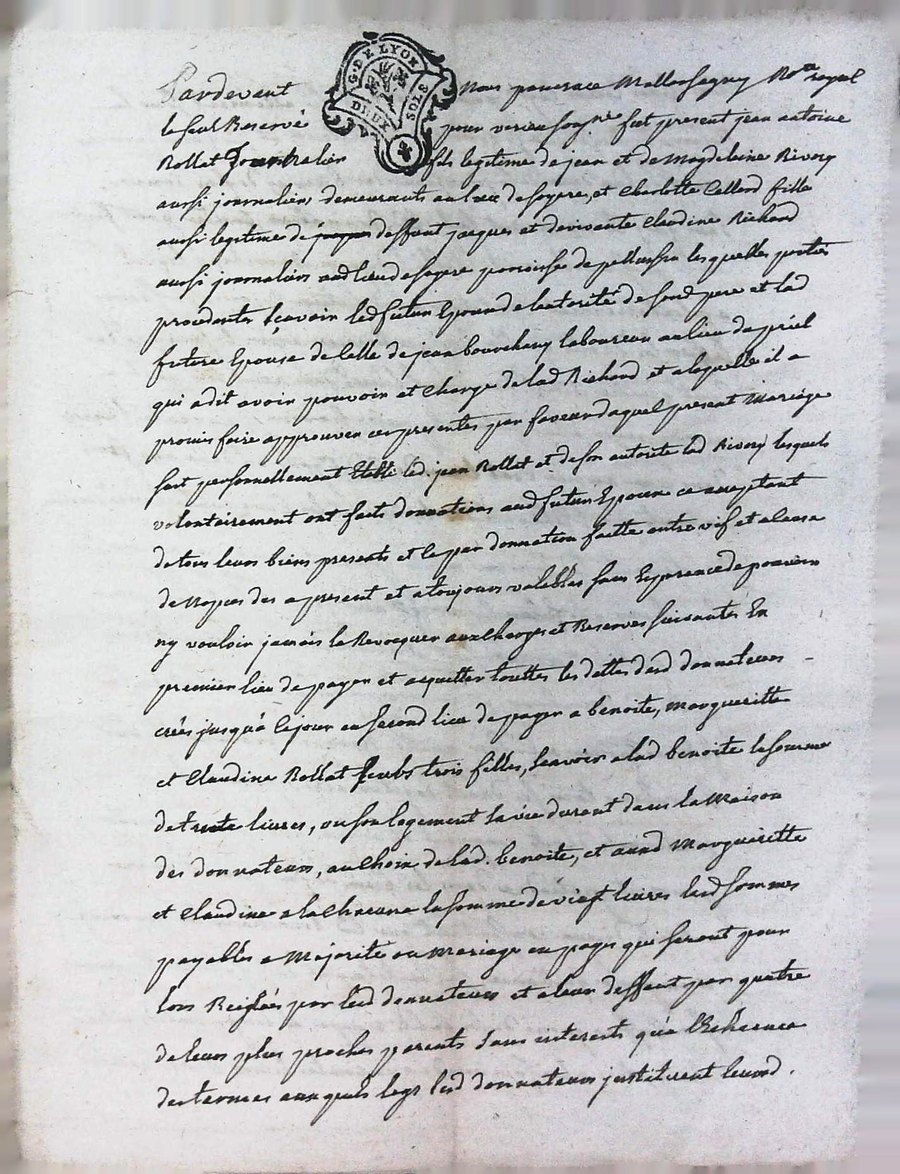 G. DE LYON
DEUX SOLS
Pardevant Nous Not.re royal
le seul Reservé pour fut present jean antoine
Rollat Journalier fils legitime de jean et de Magdeleine Rivory
aussi journaliers demeurants au lieu de soyere, et Charlotte Collard fille
aussi legitime de deffunt jacques et de vivante Claudine Richard
aussi journaliers aud lieu de soyere parroisse de pelussin lesquelles parties
procedants sçavoir led futur Epoux de lautorité de sond pere et lad
future Epouse de Celle de jean laboureur au lieu de
qui a dit avoir pouvoir et Charge de lad Richard et a laquelle il a
promis faire approuver ces presentes par faveur duquel present Mariage
sont personnellement Etabli led. jean Rollat et de son autorité lad Rivory lesquels
volontairement ont faits donnations aud futur Epoux ce acceptant
de tous leurs biens presents et ce par donnation faitte entre vif et a cause
de Nopces des a present et a toujours valables sans Esperance de pouvoir
ny vouloir jamais la Revocquer aux Charges et Reserves suivantes En
premier lieu de payer et acquitter touttes les dettes desd donnateurs
créés jusqu'à ce jour en second lieu de payer a benoite, Margueritte
et Claudine Rollat leurs trois filles, scavoir a lad benoite la somme
de trente livres, ou son logement sa vie durant dans la Maison
des donnateurs, au Choix de lad. benoite, et auxd Margueritte
et Claudine a la Chacune la somme de vingt livres lesd sommes
payables a Majorité ou Mariage en payes qui seront pour
lors Reiglées par lesd donnateurs et a leur deffaut par quatre
de leurs plus proches parents sans interests qu'a l'Echeance
des termes auxquels legs lesd donnateurs instituent leursd.